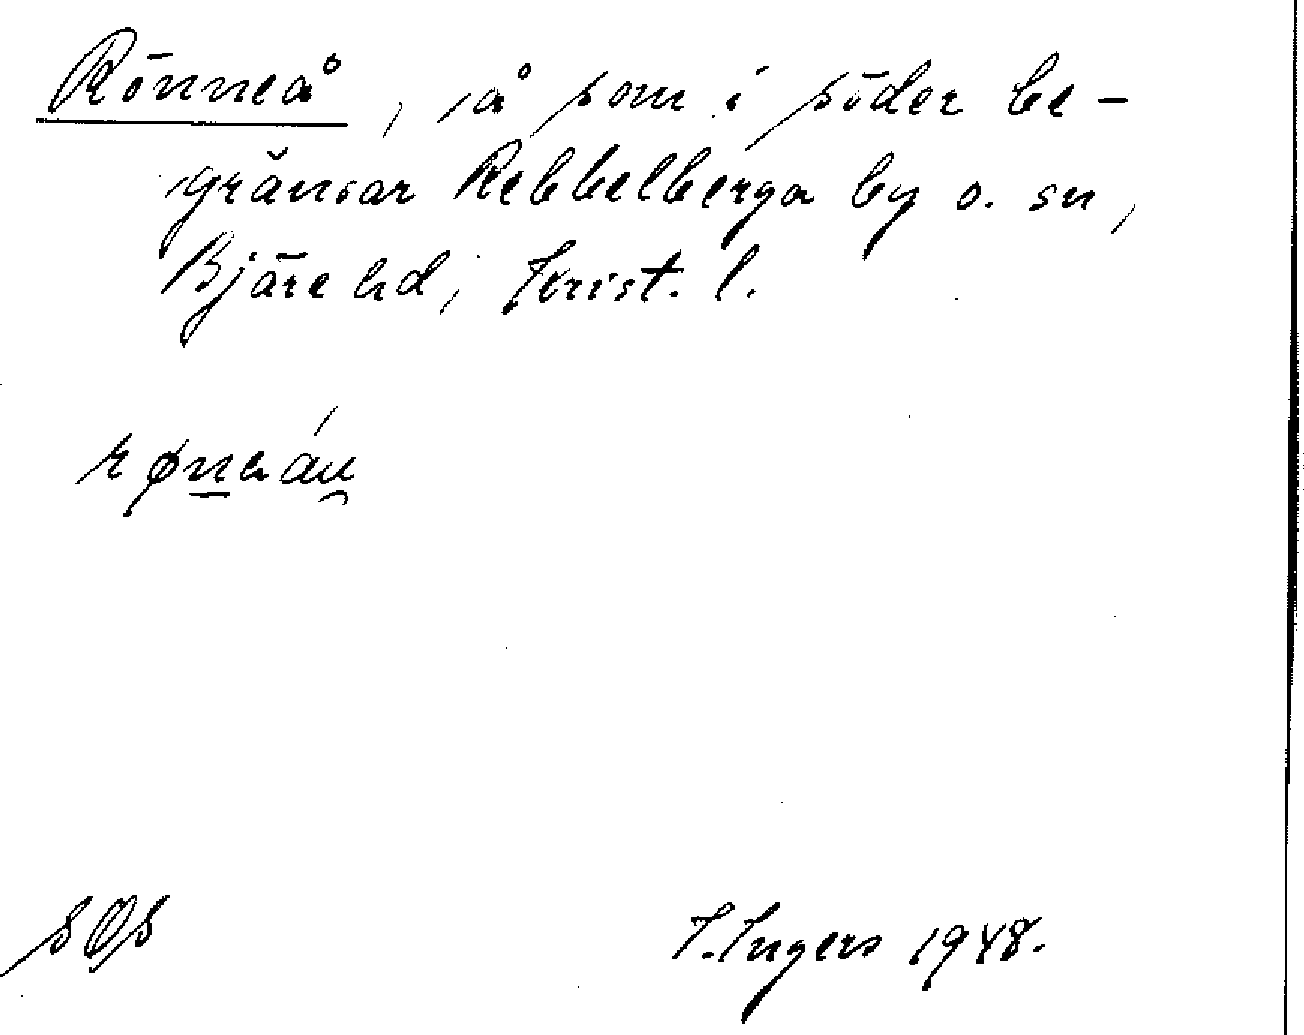 Rönneå, å som i söder be-
gränsar Rebbelberga by o. sn,
Bjäre hd, Krist. l.
SOS
I. Ingers 1948.